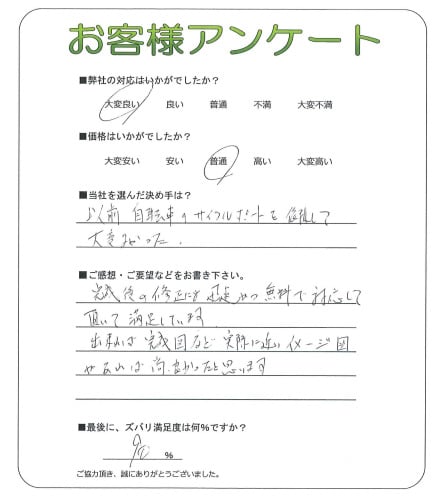 お客様アンケート
■弊社の対応はいかがでしたか？
大変良い 良い 普通 不満 大変不満
■価格はいかがでしたか？
大変安い 安い 普通 高い 大変高い
■当社を選んだ決め手は？
以前 自転車のサイクルポートを 依頼して
■ご感想・ご要望などをお書き下さい。
完成後の修正にも 迅速かつ 無料で 対応して
頂いて 満足しています。
出来れば 完成図など 実際に近い イメージ図
があれば 尚、良かったと思います
■最後に、ズバリ満足度は何％ですか？
%
ご協力頂き、誠にありがとうございました。